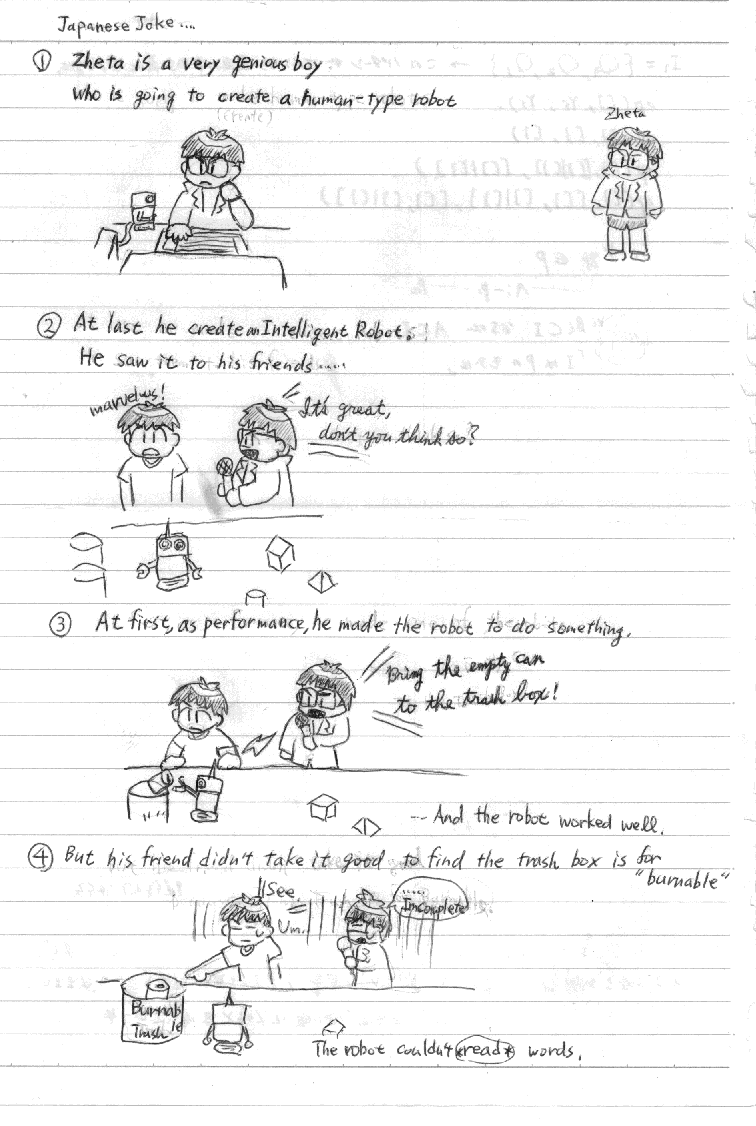 Japanese Joke....
① Zheta is a very genious boy
who is going to create a human-type robot
(create)
Zheta
② At last he create an Intelligent Robot!!
He saw it to his friends.....
marvelus!
It's great,
don't you think so?
③ At first, as performance, he made the robot to do something.
Bring the empty can
to the trash box!
... And the robot worked well.
④ But his friend didn't take it good to find the trash box is for
"burnable"
See,
Um..
.....
Imcomplete
Burnab
le
Trash
The robot couldn't *read* words.